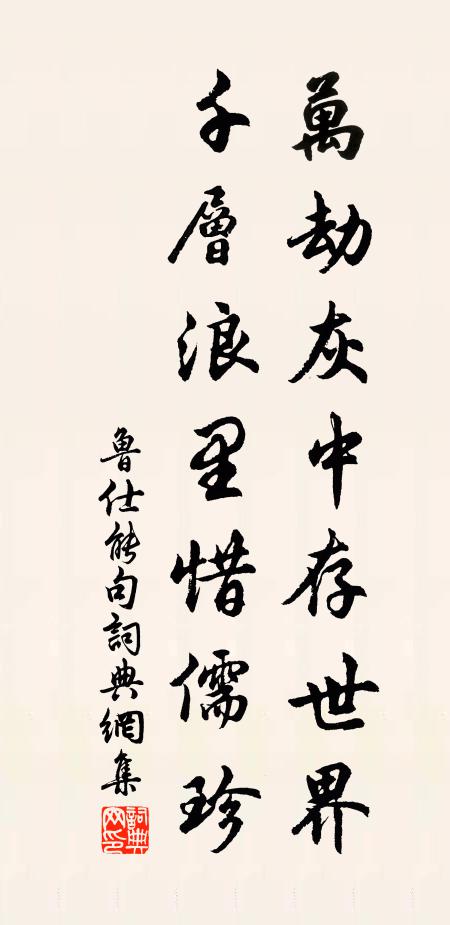 萬劫灰中存世界
千層浪里惜儒珍
魯仕能句詞典網集
詞典網印